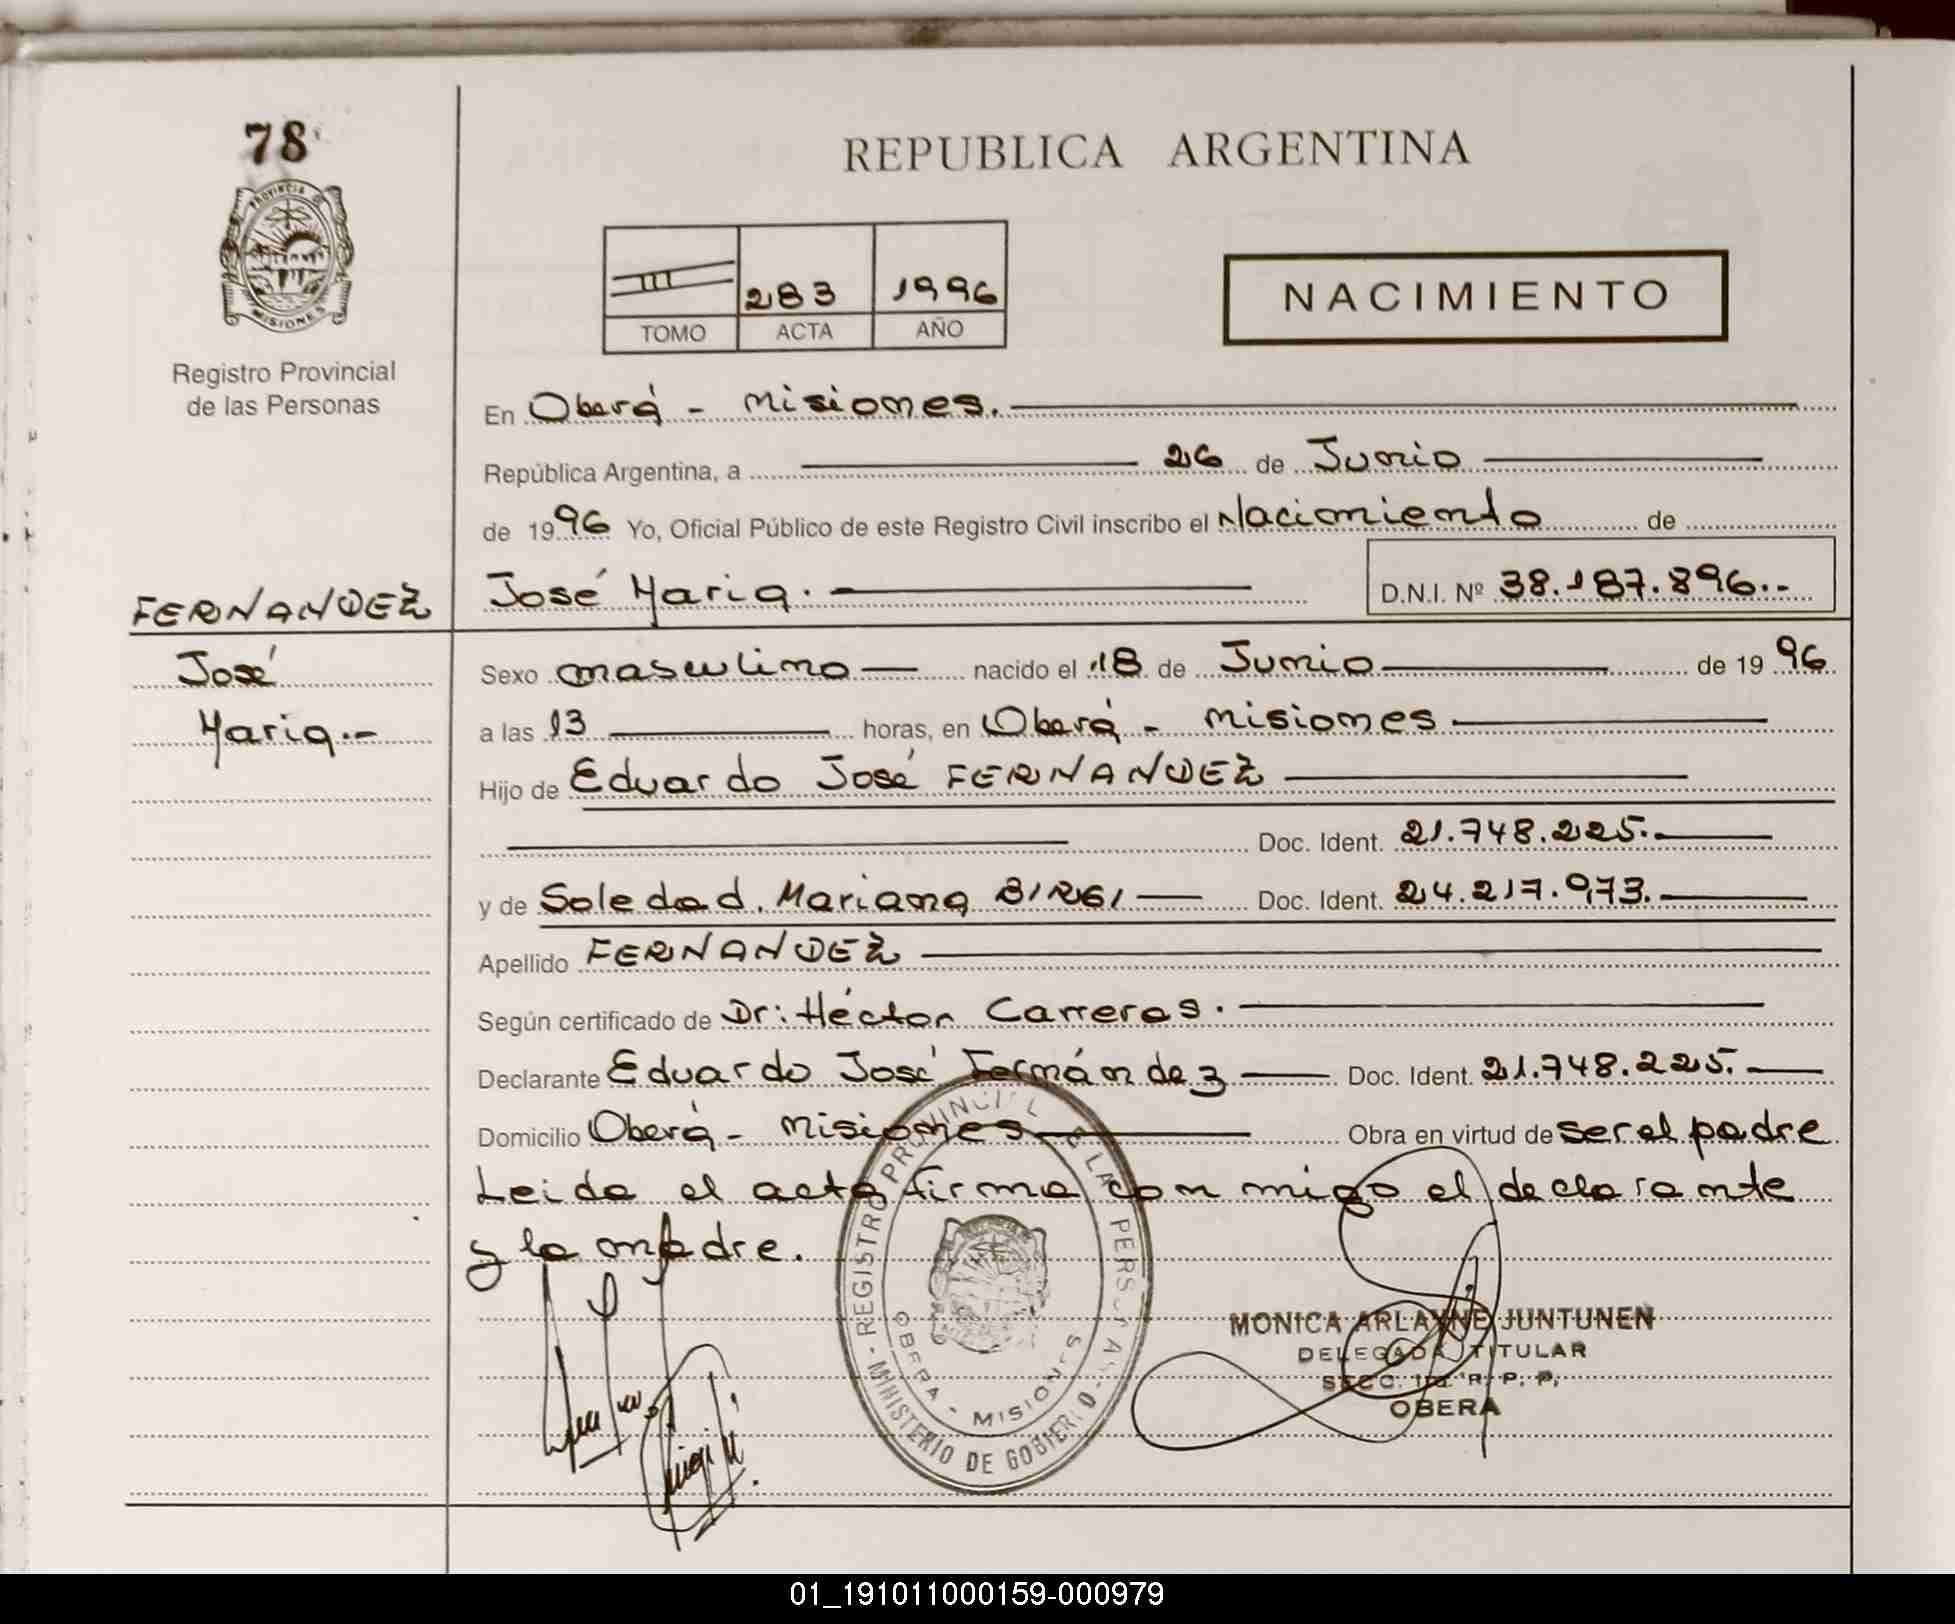 78
PROVINCIA DE
MISIONES
Registro Provincial
de las Personas
REPUBLICA ARGENTINA
III 283 1996
TOMO ACTA AÑO
NACIMIENTO
En Oberá - Misiones.
República Argentina, a 26 de Junio
de 1996 Yo, Oficial Público de este Registro Civil inscribo el Nacimiento de
José Maria. D.N.I. Nº 38.187.896.-
FERNANDEZ
José
Maria.-
Sexo masculino nacido el 18 de Junio de 1996
a las 13 horas, en Oberá - Misiones
Hijo de Eduardo José FERNANDEZ
Doc. Ident. 21.748.225.
y de Soledad Mariana BIRGI Doc. Ident. 24.217.973.
Apellido FERNANDEZ
Según certificado de Dr: Héctor Carreras.
Declarante Eduardo José Fernández Doc. Ident. 21.748.225.
Domicilio Oberá - Misiones Obra en virtud de ser el padre
Leida el acta firma con migo el declarante
y la madre.
REGISTRO PROVINCIAL DE LAS PERSONAS
OBERA - MISIONES
MINISTERIO DE GOBIERNO
MONICA ARLAYNE JUNTUNEN
DELEGADA TITULAR
SECC. 1ra. R. P. P.
OBERA
01_191011000159-000979